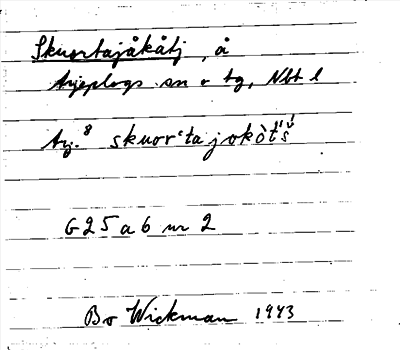 Skuortajåkåtj, å
Arjeplogs sn o tg, Nbt l
Arj. 8 skuorˈtajokòt́š́
G 25 a 6 nr 2
Bo Wickman 1943